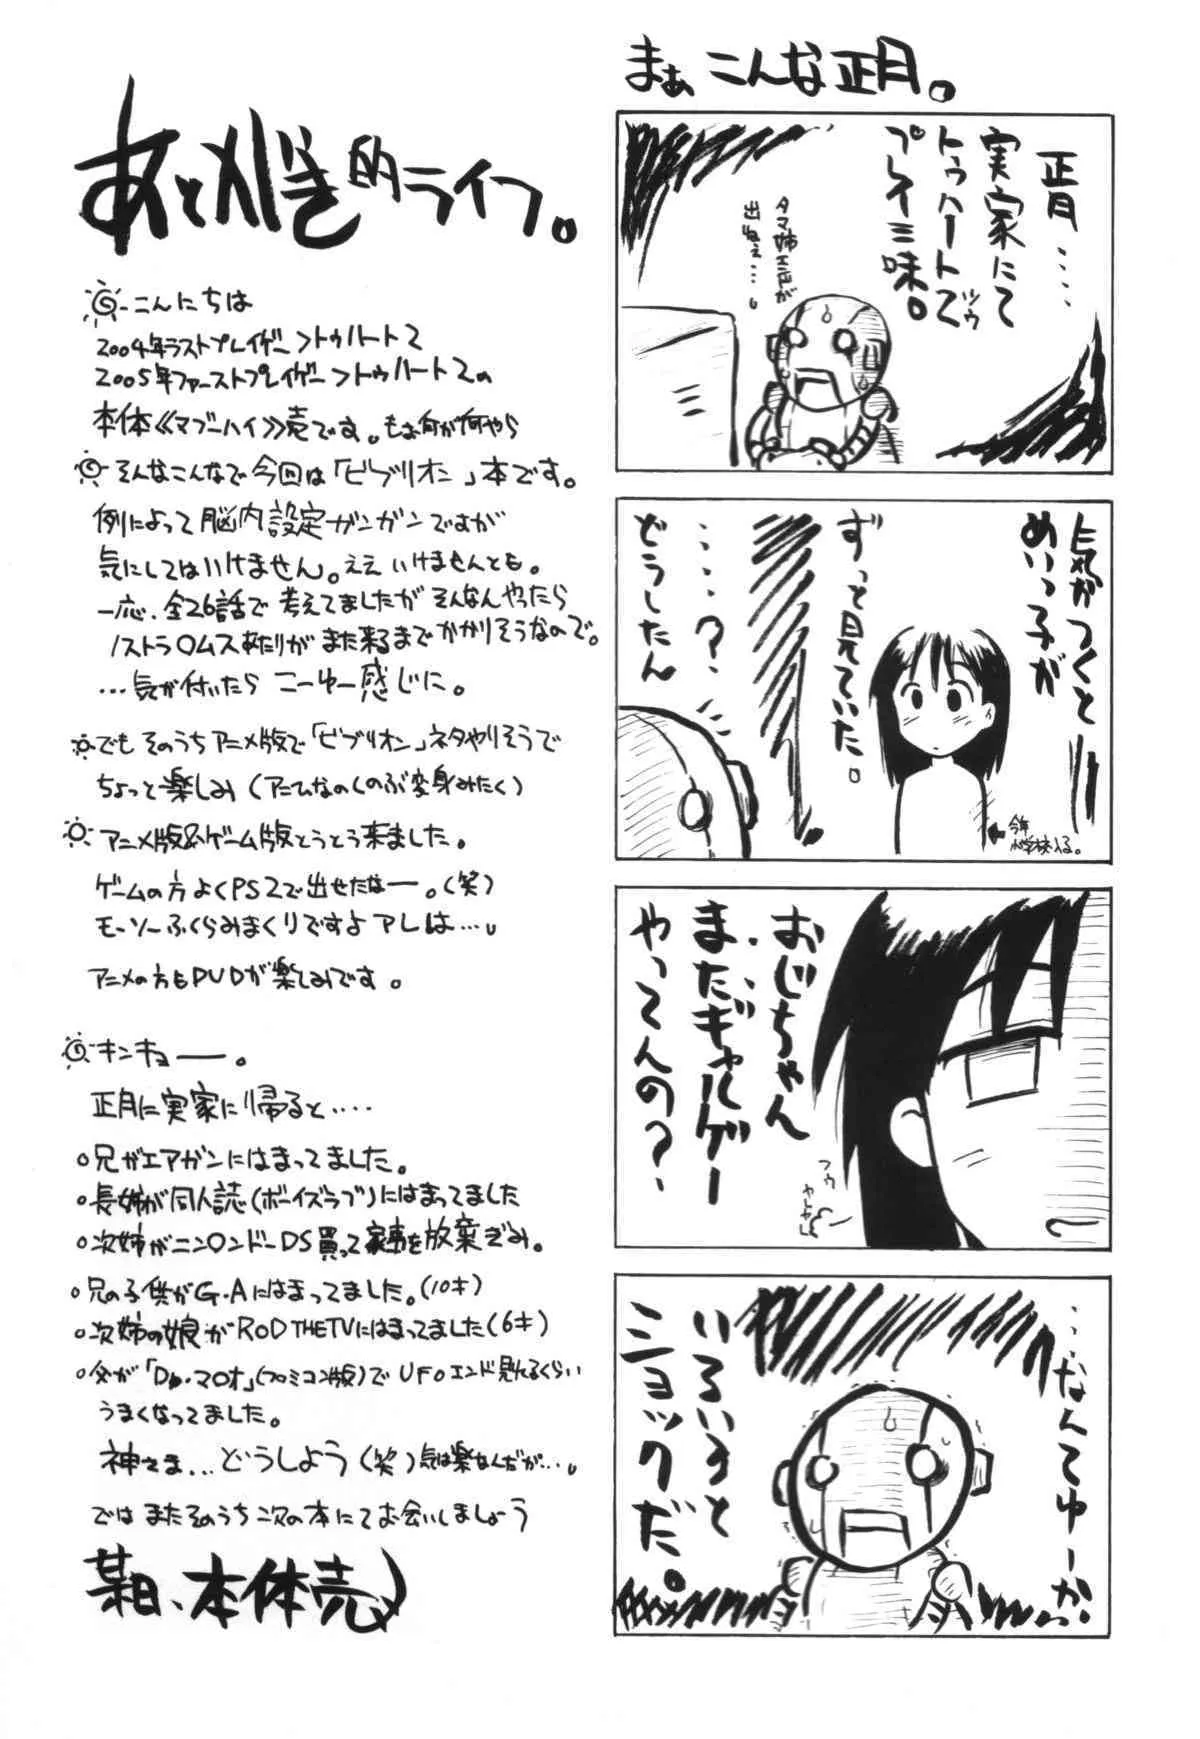 あとがき的ライフ。
こんにちは
2004年ラストプレイゲー＞トゥハート2
2005年ファーストプレイゲー＞トゥハート2の
本体《マブーハイ》売です。もぉ何が何やら
そんなこんなで今回は「ビブリオン」本です。
例によって脳内設定ガンガンですが
気にしてはいけません。ええ いけませんとも。
一応、全26話で 考えてましたが そんなんやったら
ノストラ○ムスあたりが また来るまで かかりそうなので。
…気が付いたら こーゆー感じに。
でも そのうち アニメ版で「ビブリオン」ネタやりそうで
ちょっと楽しみ(アニむなのくのぶ変身みたく)
アニメ版&ゲーム版とうとう来ました。
ゲームの方 よくPS2で出せたなー。(笑)
モーソーふくらみまくりですよ アレは…。
アニメの方もDVDが楽しみです。
キンキョー。
正月に実家に帰ると‥‥
○兄がエアガンにはまってました。
○長姉が同人誌(ボーイズラブ)にはまってました
○次姉がニン○ンドーDS買って家事を放棄ぎみ。
○兄の子供がG・Aにはまってました。(10才)
○次姉の娘がROD THE TVにはまってました(6才)
○父が「Dr.マ○オ」(ファミコン版)で UFOエンド見れるくらい
うまくなってました。
神さま…どうしよう(笑)気は楽なんだが…。
では またそのうち 次の本にて お会いしましょう
某日、本体売
まぁ こんな正月。
正月‥‥
実家にて
トゥハート2
ツゥ
で
プレイ三昧。
タマ姉エンドが
出ねぇ…。
気がつくと
めいっ子が
ずっと見ていた。
‥‥？
どうしたん
今年
小学校入る。
おじちゃん
またギャルゲー
やってんの？
フゥ
やれやれ
…なんてゆーか
いろいろと
ショックだ。